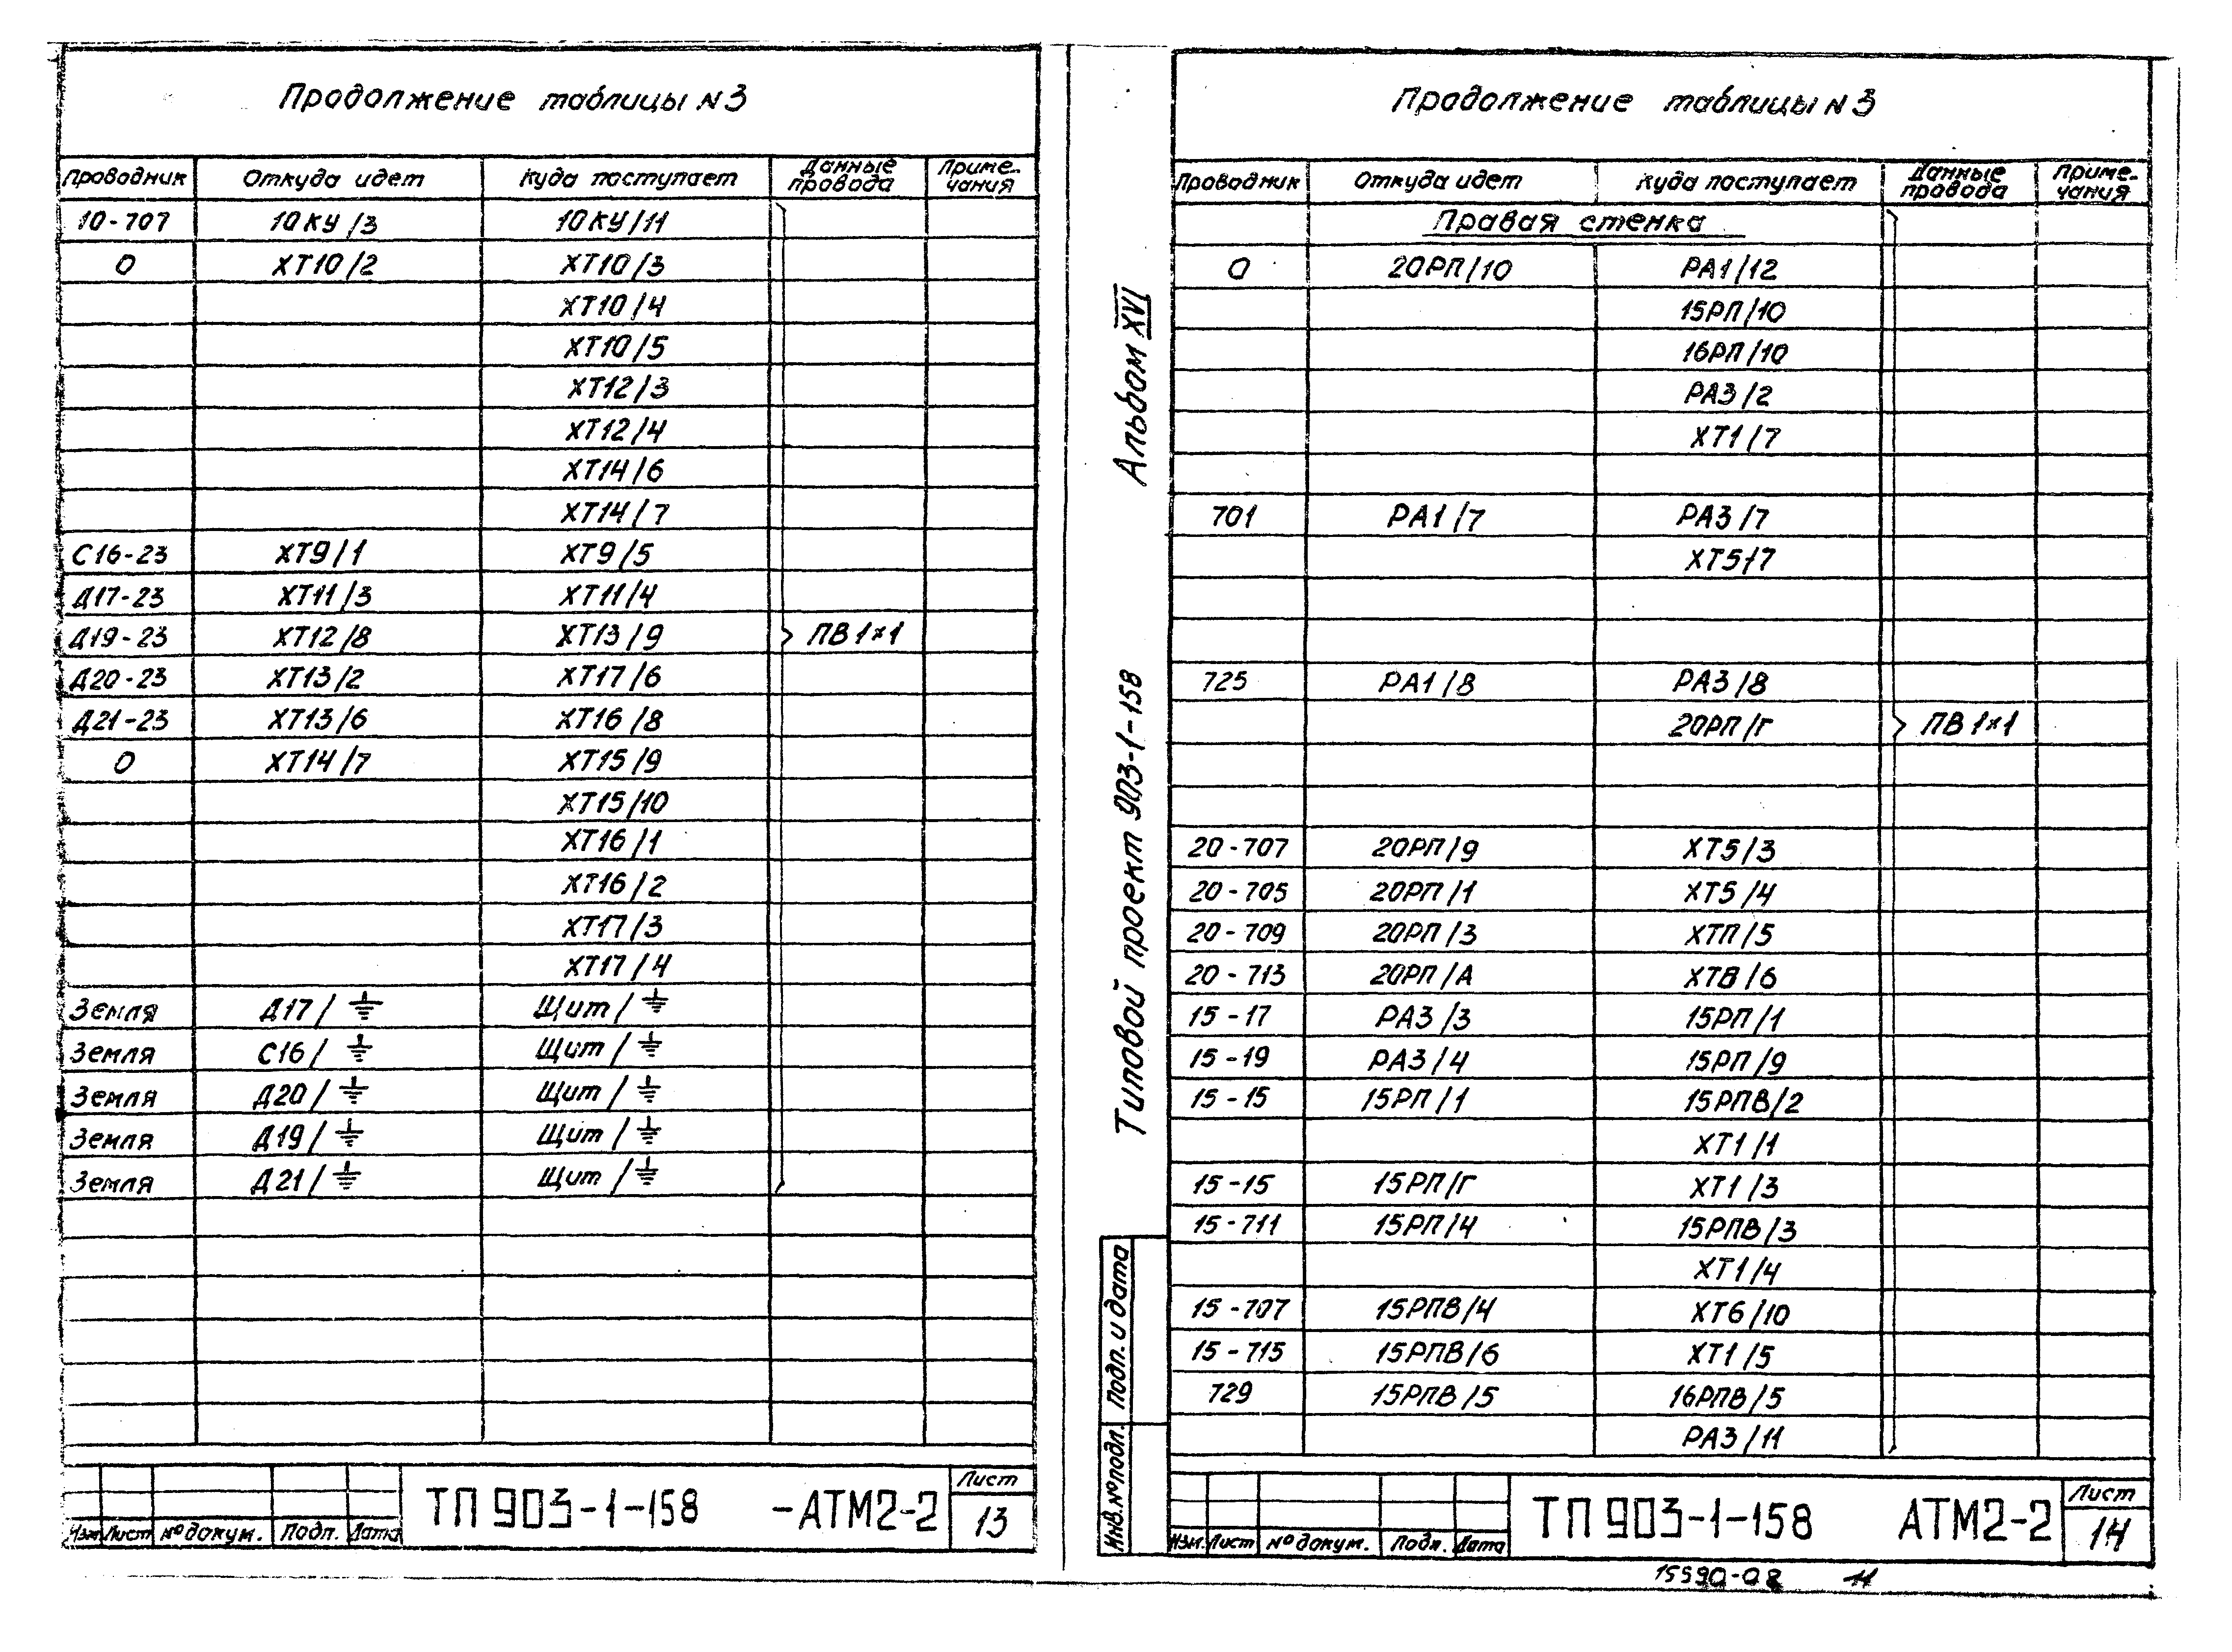 Продолжение таблицы N3
Проводник Откуда идет Куда поступает Данные провода Приме-чания
10-707 10КУ/3 10КУ/11
0 ХТ10/2 ХТ10/3
ХТ10/4
ХТ10/5
ХТ12/3
ХТ12/4
ХТ14/6
ХТ14/7
С16-23 ХТ9/1 ХТ9/5
Д17-23 ХТ11/3 ХТ11/4
Д19-23 ХТ12/8 ХТ13/9 ПВ 1×1
Д20-23 ХТ13/2 ХТ17/6
Д21-23 ХТ13/6 ХТ16/8
0 ХТ14/7 ХТ15/9
ХТ15/10
ХТ16/1
ХТ16/2
ХТ17/3
ХТ17/4
Земля Д17/⏚ Щит/⏚
Земля С16/⏚ Щит/⏚
Земля Д20/⏚ Щит/⏚
Земля Д19/⏚ Щит/⏚
Земля Д21/⏚ Щит/⏚
Изм Лист № докум. Подп. Дата
ТП 903-1-158 -АТМ2-2
Лист
13
Альбом XVI
Типовой проект 903-1-158
Подп. и дата
Инв. № подл.
Продолжение таблицы N3
Проводник Откуда идет Куда поступает Данные провода Приме-чания
Правая стенка
0 20РП/10 РА1/12
15РП/10
16РП/10
РА3/2
ХТ1/7
701 РА1/7 РА3/7
ХТ5/7
725 РА1/8 РА3/8
20РП/Г ПВ 1×1
20-707 20РП/9 ХТ5/3
20-705 20РП/1 ХТ5/4
20-709 20РП/3 ХТП/5
20-713 20РП/А ХТ8/6
15-17 РА3/3 15РП/1
15-19 РА3/4 15РП/9
15-15 15РП/1 15РПВ/2
ХТ1/1
15-15 15РП/Г ХТ1/3
15-711 15РП/4 15РПВ/3
ХТ1/4
15-707 15РПВ/4 ХТ6/10
15-715 15РПВ/6 ХТ1/5
729 15РПВ/5 16РПВ/5
РА3/11
Изм. Лист № докум. Подп. Дата
ТП 903-1-158 АТМ2-2
Лист
14
11